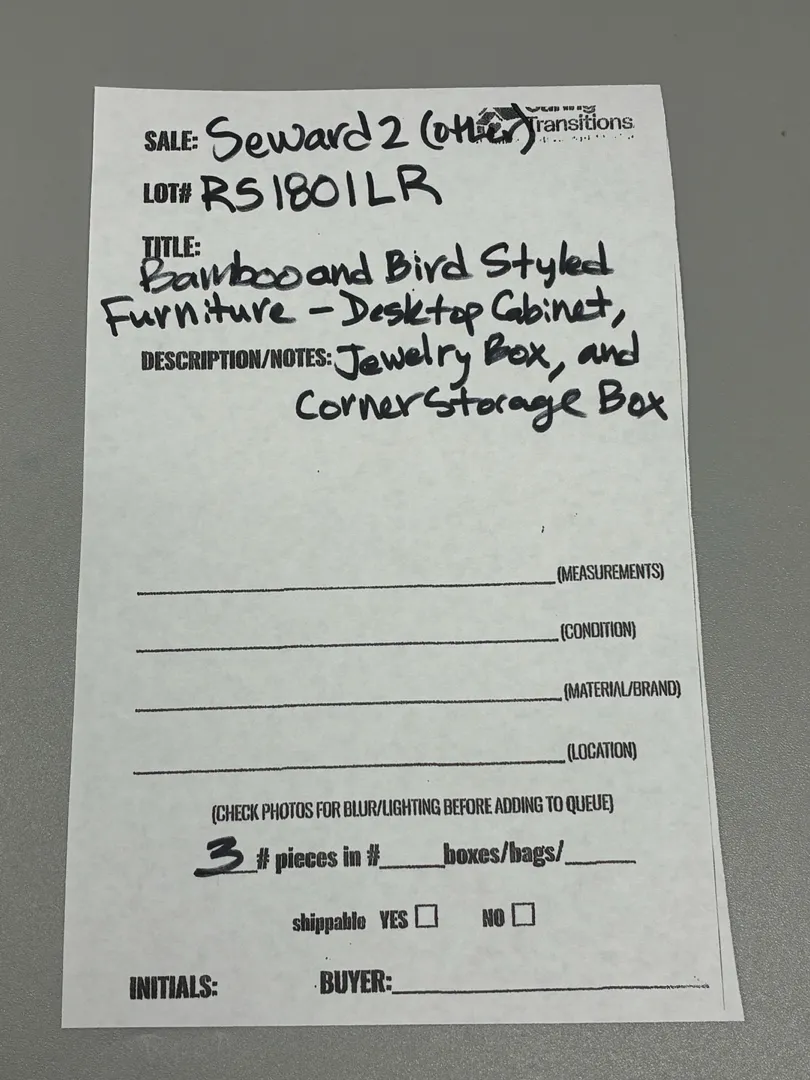 Transitions
SALE: Seward 2 (other)
LOT# RS1801LR
TITLE:
Bamboo and Bird Styled
Furniture - Desktop Cabinet,
DESCRIPTION/NOTES: Jewelry Box, and
Corner Storage Box
(MEASUREMENTS)
(CONDITION)
(MATERIAL/BRAND)
(LOCATION)
(CHECK PHOTOS FOR BLUR/LIGHTING BEFORE ADDING TO QUEUE)
3 # pieces in #____boxes/bags/____
shippable YES ☐ NO ☐
INITIALS: BUYER: